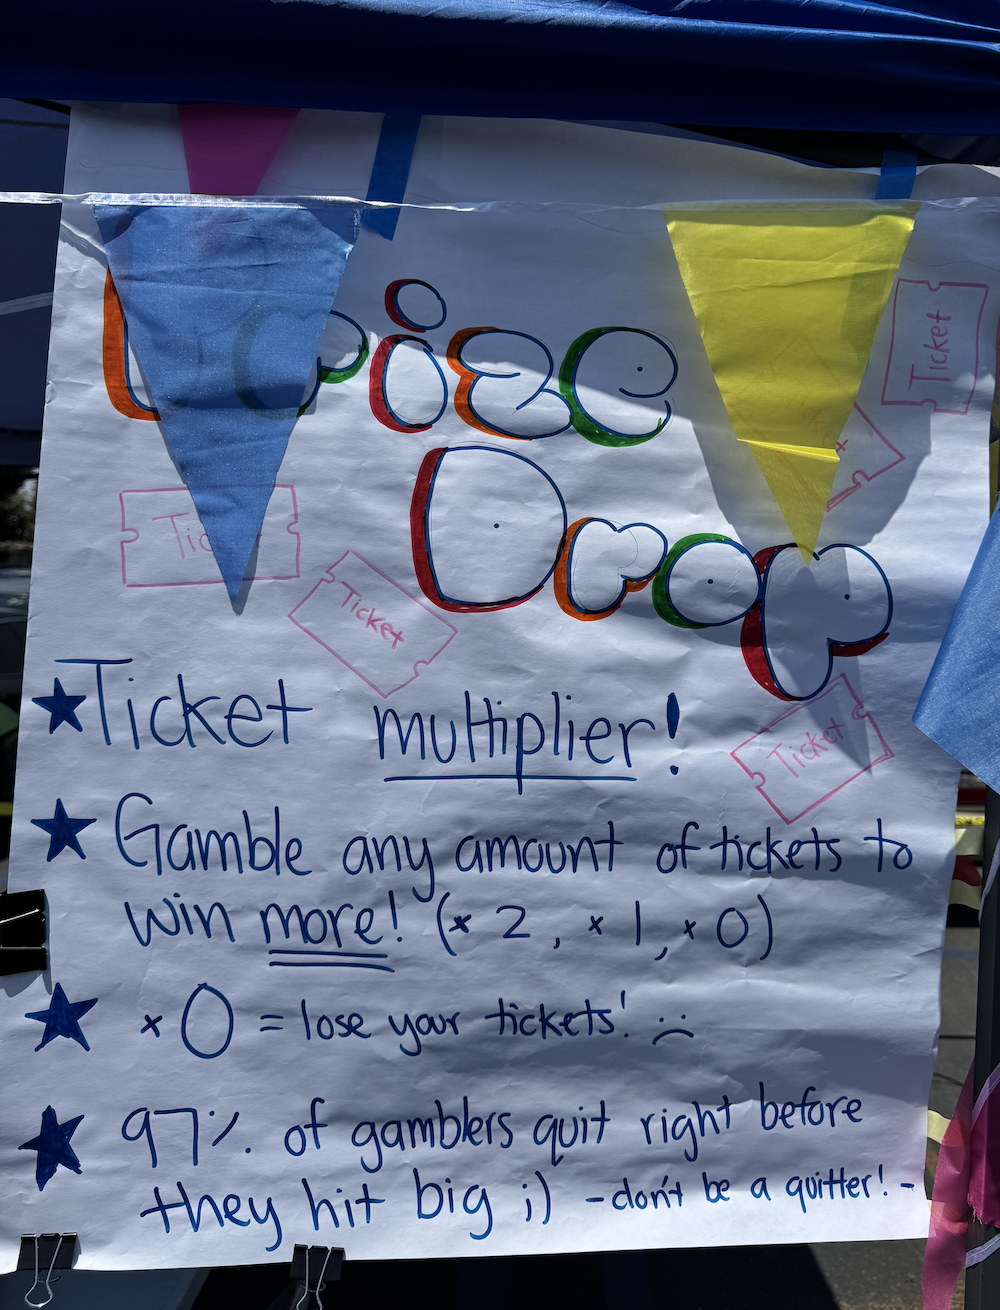 Prize
Ticket
Drop
Ticket
Ticket
Ticket multiplier!
Ticket
Gamble any amount of tickets to
win more! (× 2, × 1, × 0)
× 0 = lose your tickets! :(
97% of gamblers quit right before
they hit big ;) -don't be a quitter!-